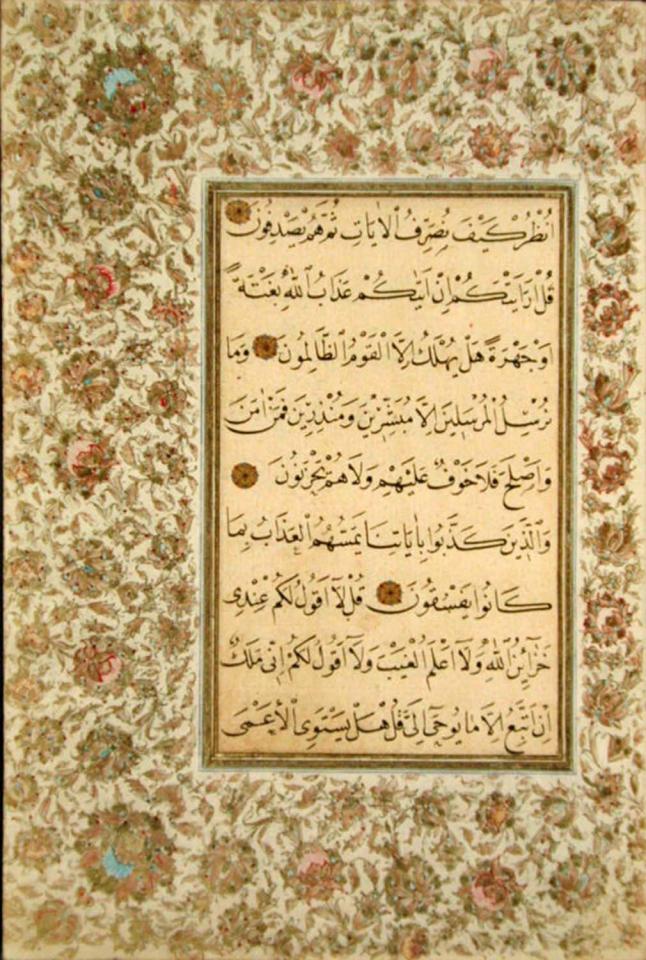 اُنْظُرْ كَيْفَ نُصَرِّفُ الْاٰيَاتِ ثُمَّ هُمْ يَصْدِفُونَ
قُلْ اَرَاَيْتَكُمْ اِنْ اَتٰيكُمْ عَذَابُ اللّٰهِ بَغْتَةً
اَوْ جَهْرَةً هَلْ يُهْلَكُ اِلَّا الْقَوْمُ الظَّالِمُونَ وَمَا
نُرْسِلُ الْمُرْسَلِينَ اِلَّا مُبَشِّرِينَ وَمُنْذِرِينَ فَمَنْ اٰمَنَ
وَاَصْلَحَ فَلَا خَوْفٌ عَلَيْهِمْ وَلَا هُمْ يَحْزَنُونَ
وَالَّذِينَ كَذَّبُوا بِاٰيَاتِنَا يَمَسُّهُمُ الْعَذَابُ بِمَا
كَانُوا يَفْسُقُونَ قُلْ لَٓا اَقُولُ لَكُمْ عِنْدِى
خَزَٓائِنُ اللّٰهِ وَلَٓا اَعْلَمُ الْغَيْبَ وَلَٓا اَقُولُ لَكُمْ اِنِّى مَلَكٌ
اِنْ اَتَّبِعُ اِلَّا مَا يُوحٰٓى اِلَىَّ قُلْ هَلْ يَسْتَوِى الْاَعْمٰى